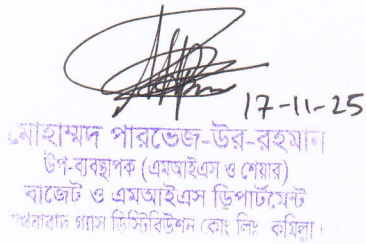 17-11-25
মোহাম্মদ পারভেজ-উর-রহমান
উপ-ব্যবস্থাপক (এমআইএস ও শেয়ার)
বাজেট ও এমআইএস ডিপার্টমেন্ট
বাখরাবাদ গ্যাস ডিস্ট্রিবিউশন কোং লিঃ কুমিল্লা।